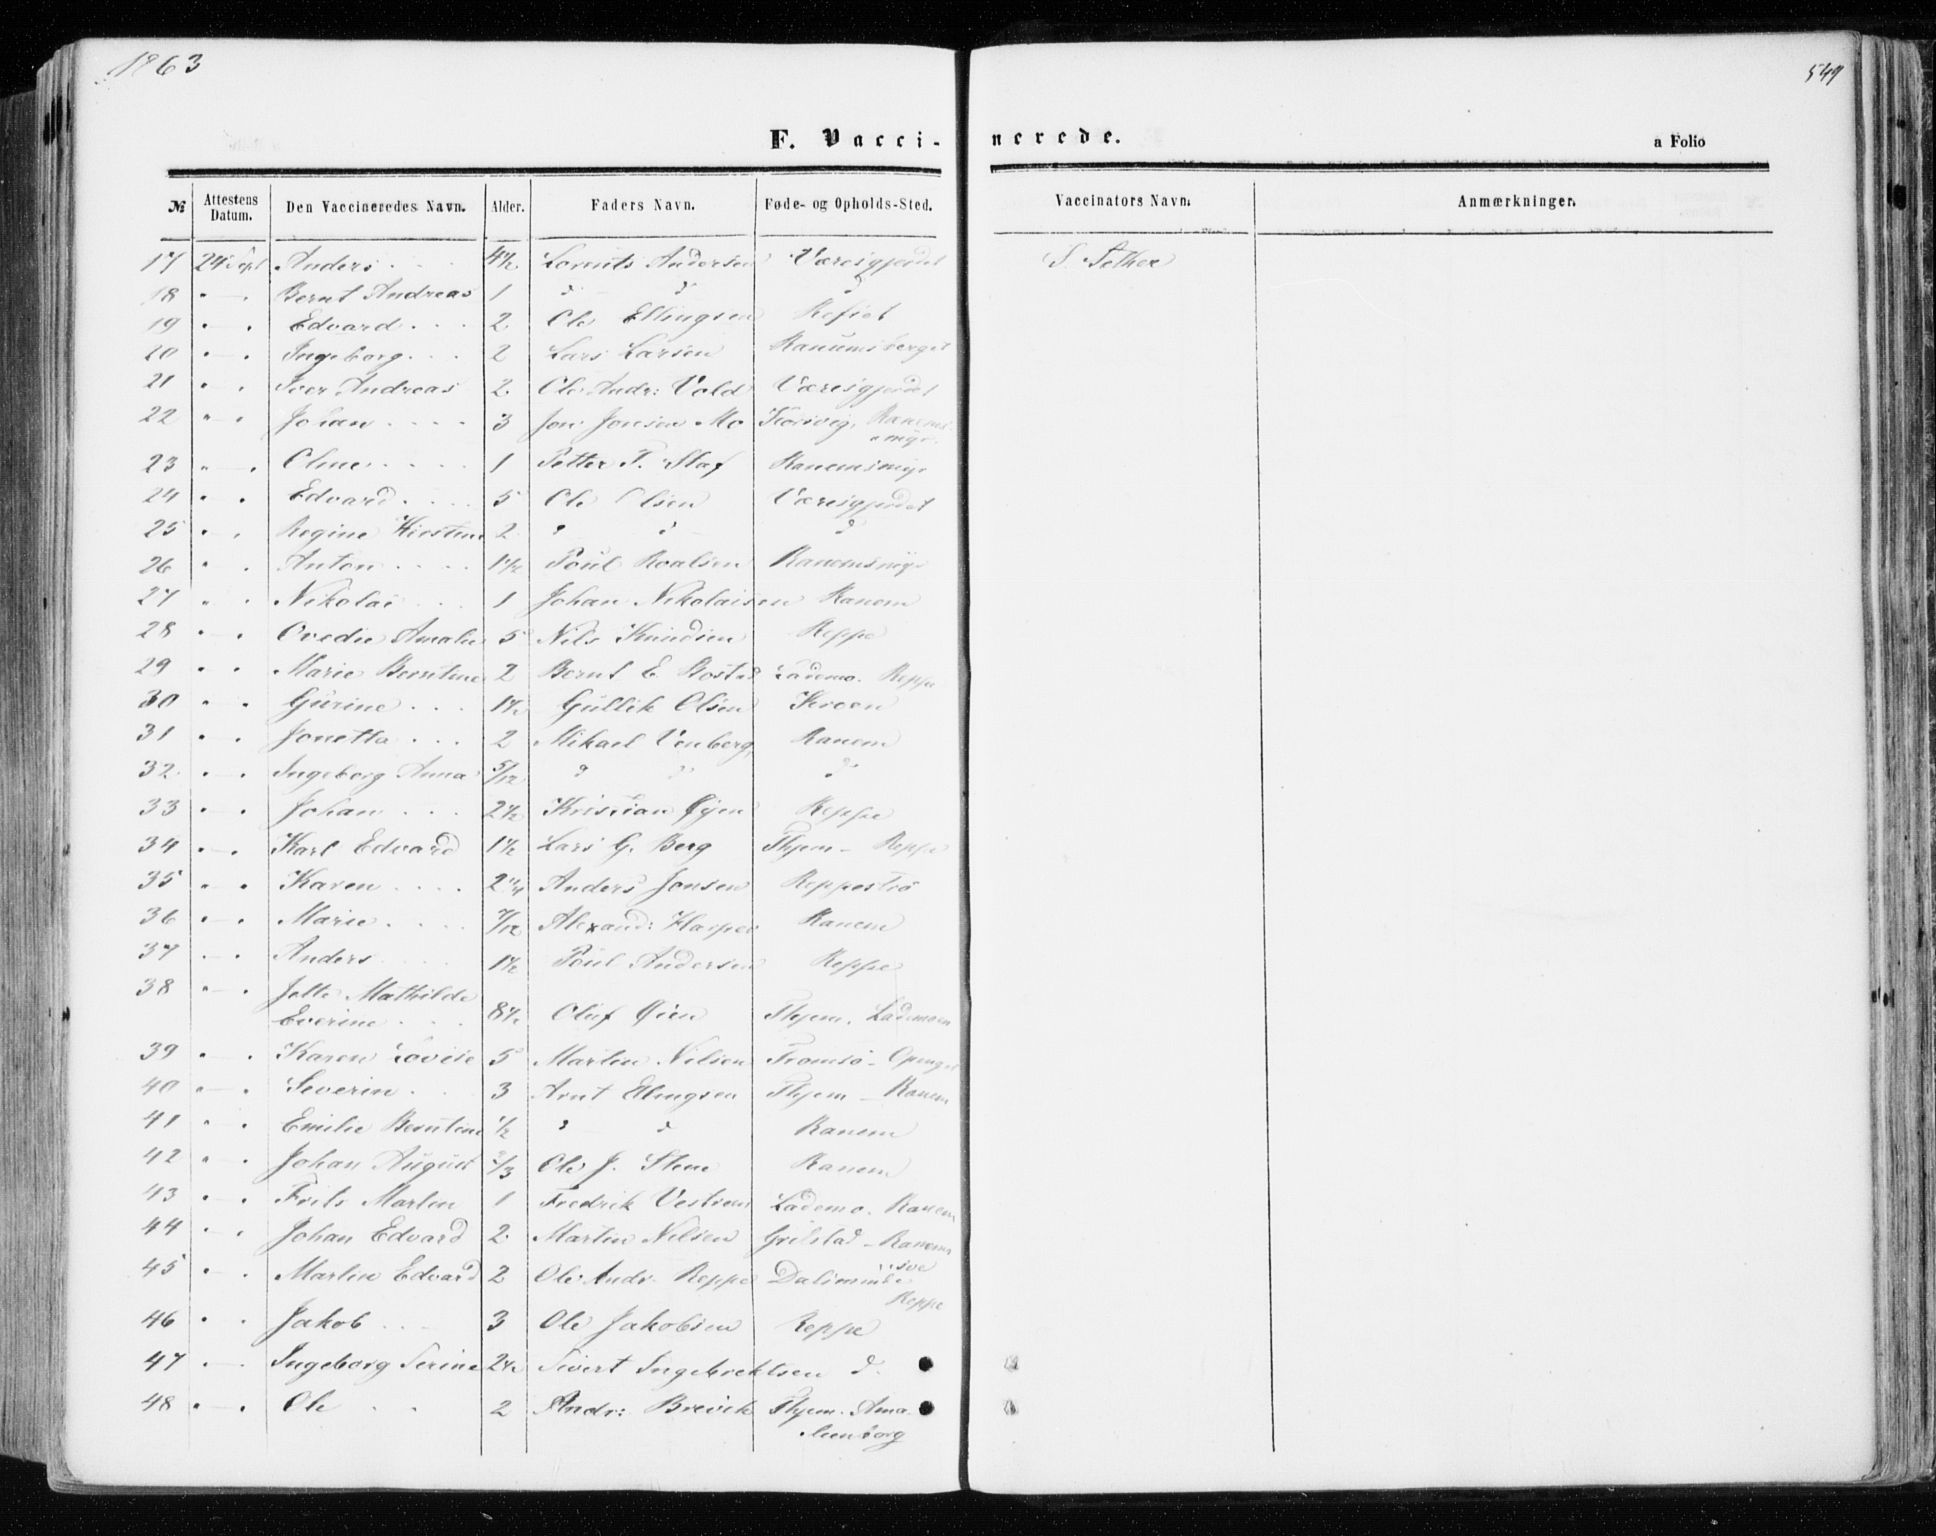 1863
549
F. Vacci-
nerede.
a Folio
№ Attestens Datum. Den Vaccineredes Navn. Alder. Faders Navn. Føde- og Opholds-Sted. Vaccinators Navn. Anmærkninger.
17 24 Sept Anders 4½ Lorents Andersen Væresgjerdet S. Sether
18 " — " Bernt Andreas 1 d d d
19 " — " Edvard 2 Ole Ellingsen
20 " — " Ingeborg 2 Lars Larsen Ranumsberget
21 " — " Iver Andreas 2 Ole Andr: Vold Væresgjerdet
22 " — " Johan 3 Jon Jonsen Mo Korsvig, Ranems-
myr.
23 " — " Oline 1 Petter P. Slaf Ranemsmyr
24 " — " Edvard 5 Ole Olsen Væresgjerdet
25 " — " Regine Kirstine 2 d d d
26 " — " Anton 1½ Poul Roalsen Ranemsmyr
27 " — " Nikolai 1 Johan Nikolaisen Ranem
28 " — " Ovedie Amalie 5 Nils Knudsen Reppe
29 " — " Marie Berntine 2 Bernt E. Rostad Lademo. Reppe
30 " — " Gurine 1½ Gullik Olsen Kroen
31 " — " Jonetta 2 Mikael Venberg, Ranem
32 " — " Ingeborg Anna 5/12 d d d
33 " — " Johan 2½ Kristian Øyen Reppe
34 " — " Karl Edvard 1½ Lars G. Berg Thjem - Reppe
35 " — " Karen 2¼ Anders Jonsen Reppestrø
36 " — " Marie 7/12 Alexand: Harper Ranem
37 " — " Anders 1½ Poul Andersen Reppe
38 " — " Jette Mathilde
Everine 8½ Oluf Øien Thjem. Lademoen
39 " — " Karen Lovise 5 Martin Nilsen Tromsø -
40 " — " Severin 3 Arnt Ellingsen Thjem - Ranem
41 " — " Emilie Berntine ½ d d Ranem
42 " — " Johan August 2/3 Ole J. Stene Ranem
43 " — " Frits Martin 1 Fredrik Vestrum Lademo. Ranem
44 " — " Johan Edvard 2 Martin Nilsen Grilstad - Ranems
45 " — " Martin Edvard 2 Ole Andr. Reppe
Reppe
46 " — " Jakob 3 Ole Jakobsen Reppe
47 " — " Ingeborg Serine 2½ Sivert Ingebrektsen d.
48 " — " Ole 2 Andr: Brevik Thjem. Ama-
lienborg